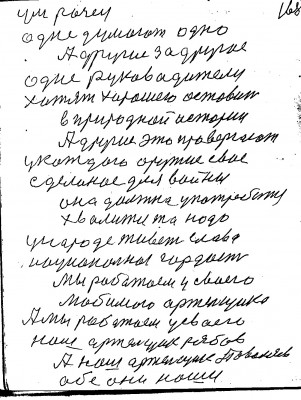 ум рачеи 168
одне думают одно
А другие за другое
одне руковадители
хотят хорошего оставит
в природной истории
А другие это провергают
укаждого оружие свае
сделаное для войны
она должна употреблят
хвалит та надо
ународе живет слава
национални гордост
мы работаем у своего
любимого артелщика
А мы работаем усваего
наш артелщик рябов
А наш артелщик
обе они наши